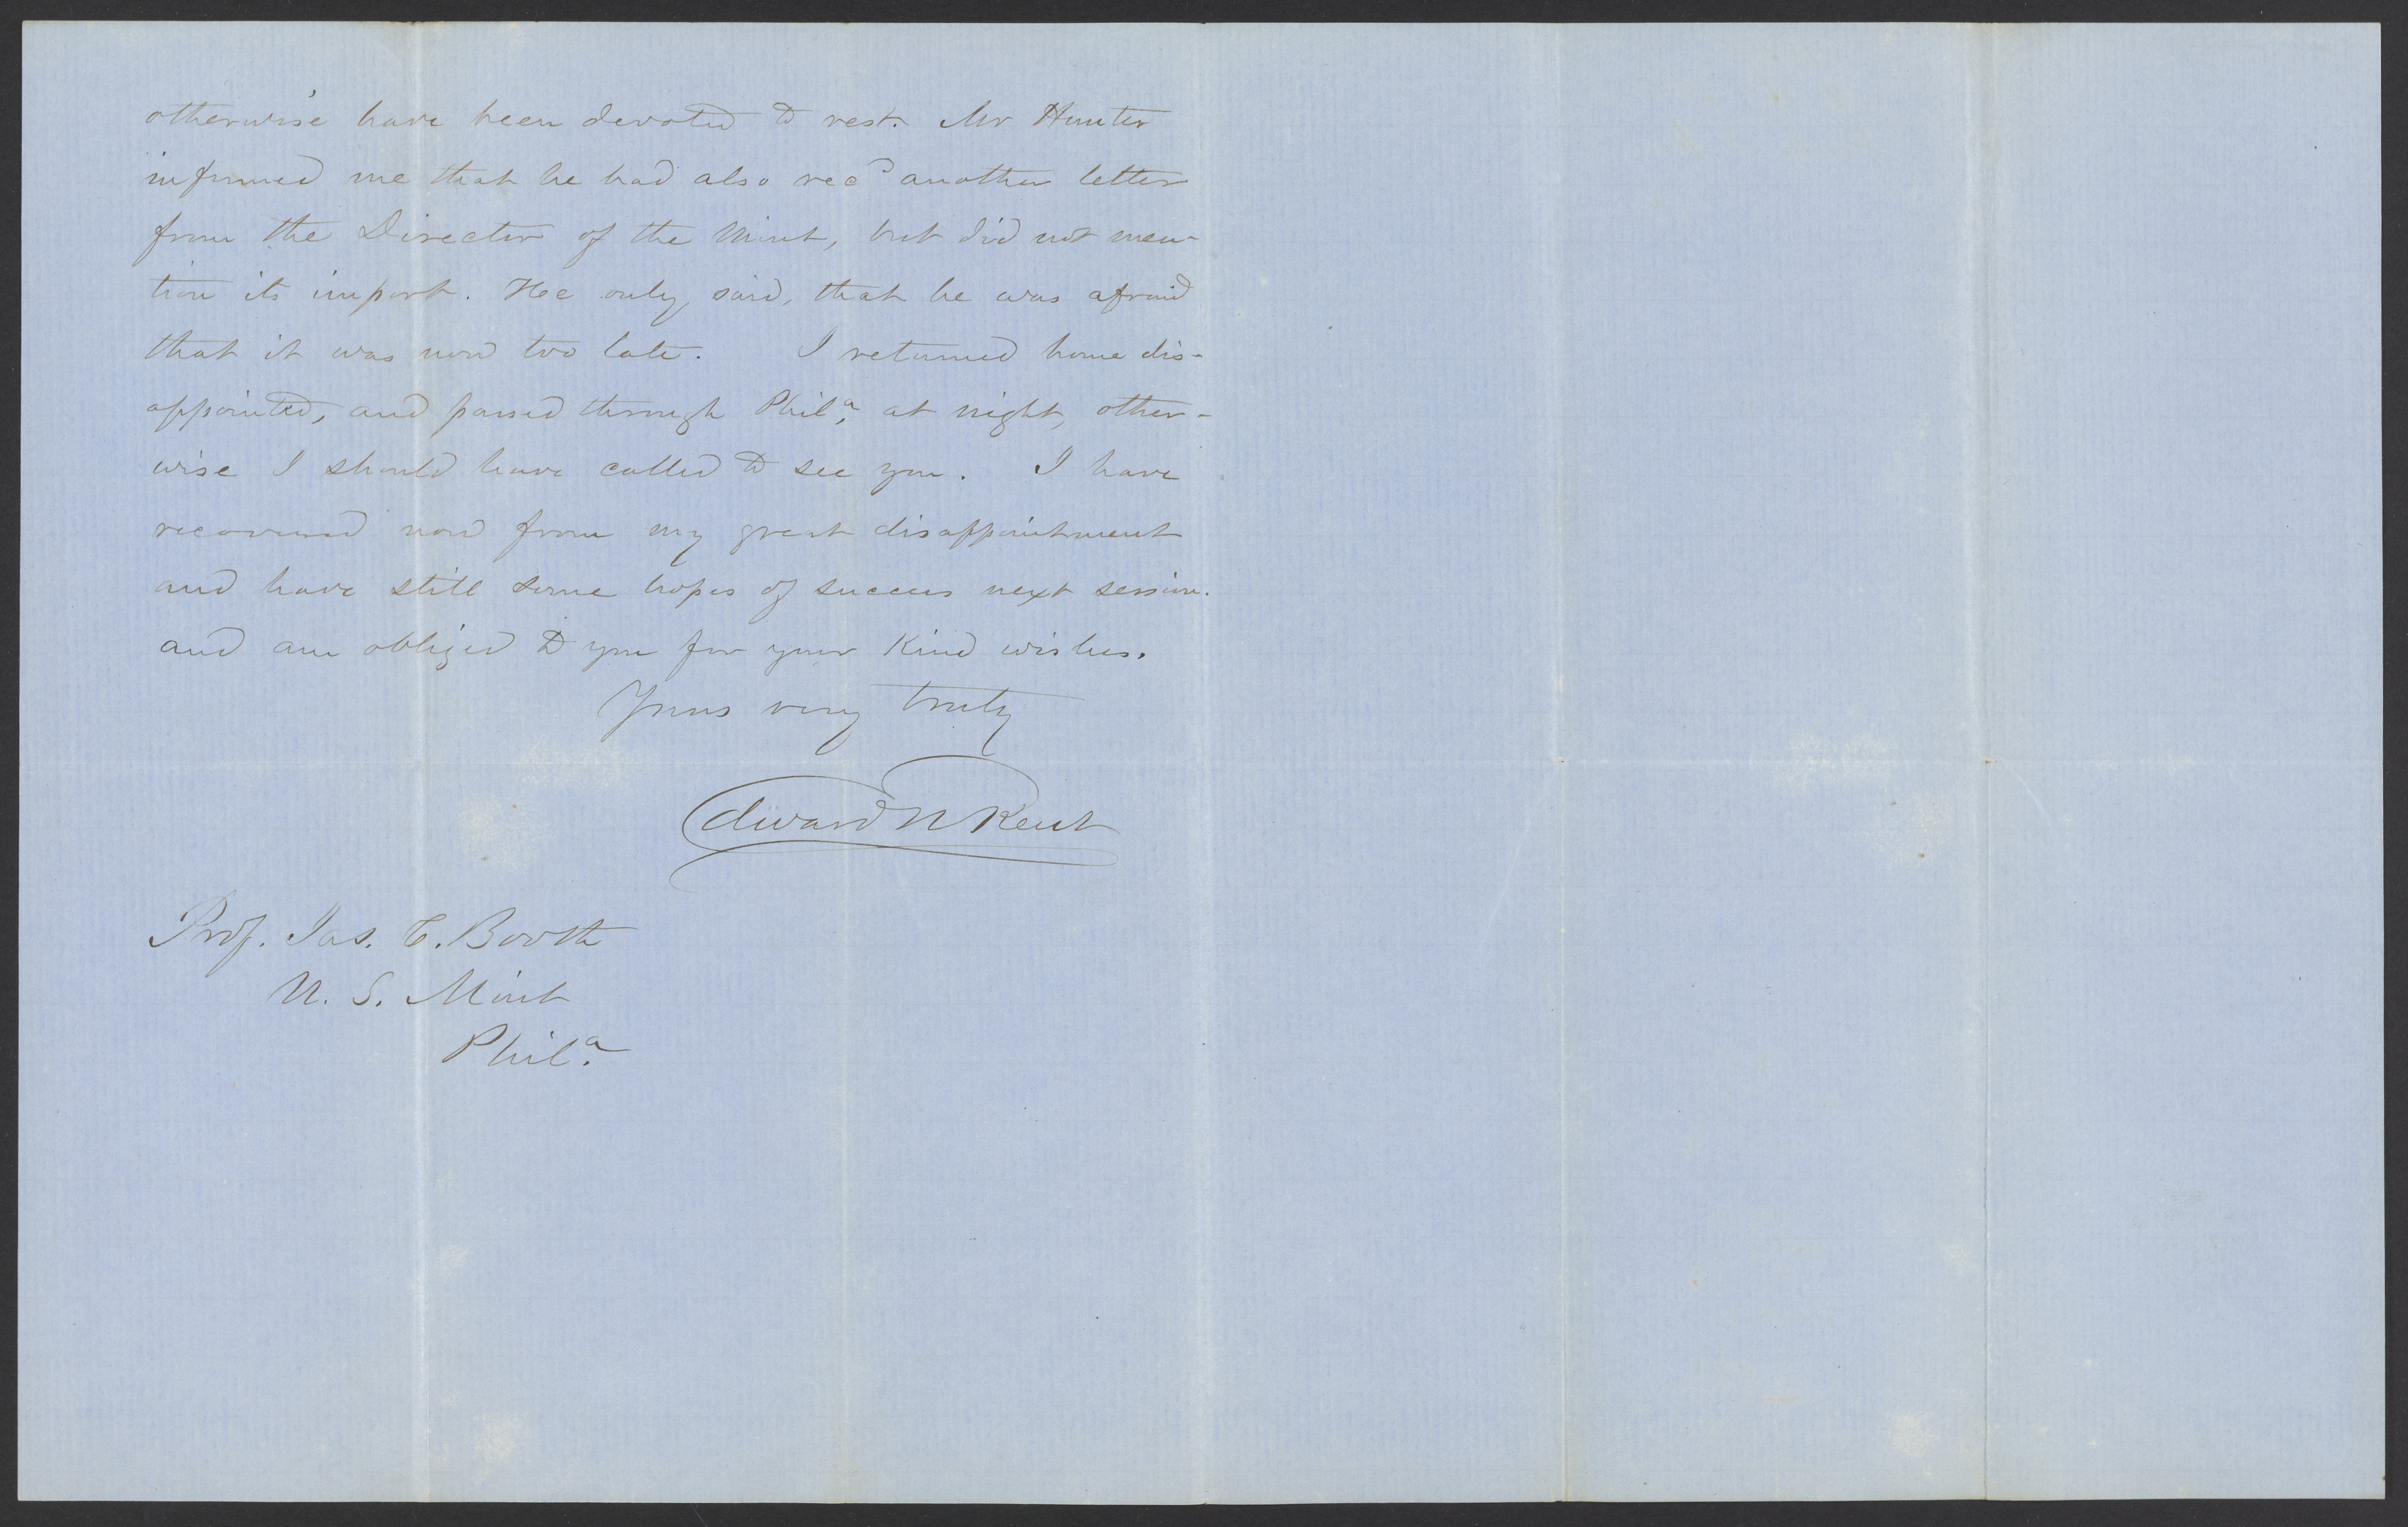 otherwise have been devoted to rest. Mr Hunter
informed me that he had also recd another letter
from the Director of the Mint, but did not men-
tion its import. Hee only said, that he was afraid
that it was now too late. I returned home dis-
appointed, and passed through Phila, at night, other-
wise I should have called to see you. I have
recovered now from my great disappointment
and have still some hopes of success next session.
and am obliged to you for your kind wishes.
Yours very truly
Edward N Kent
Prof. Jas. C. Booth
U. S. Mint
Phila.